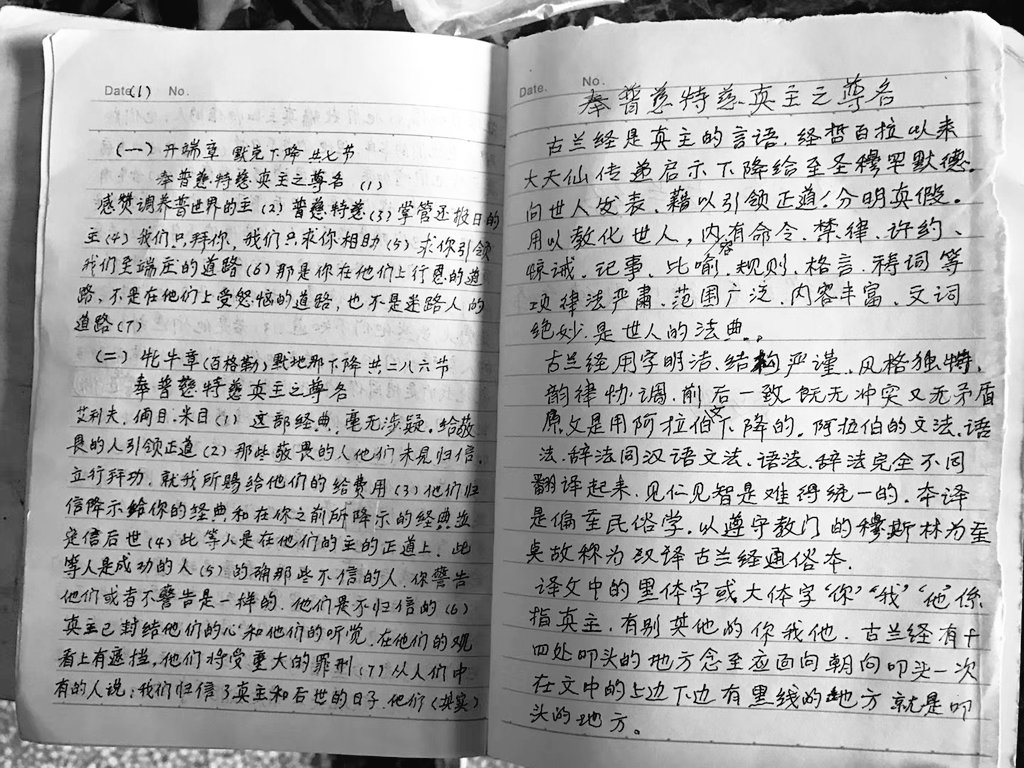 Date (1) No.
(一) 开端章 默克下降 共七节
奉普慈特慈真主之尊名 (1)
感赞调养普世界的主(2) 普慈特慈(3) 掌管还报日的
主(4) 我们只拜你,我们只求你相助(5) 求你引领
我们至端庄的道路(6) 那是你在他们上行恩的道
路,不是在他们上受怒恼的道路,也不是迷路人的
道路(7)
(二) 牝牛章(百格勒)默地那下降 共二八六节
奉普慈特慈真主之尊名
艾利夫、俩目、米目(1) 这部经典,毫无涉疑,给敬
畏的人引领正道(2) 那些敬畏的人他们未见归信,
立行拜功,就我所赐给他们的给费用(3) 他们归
信降示给你的经典,和在你之前所降示的经典并
定信后世(4) 此等人是在他们的主的正道上,此
等人是成功的人(5) 的确那些不信的人,你警告
他们或者不警告是一样的,他们是不归信的(6)
真主已封结他们的心和他们的听觉,在他们的观
看上有遮挡,他们将受重大的罪刑(7) 从人们中
有的人说:我们归信了真主和后世的日子,他们(其实)
Date. No.
奉普慈特慈真主之尊名
古兰经是真主的言语,经哲百拉以来
大天仙传递启示下降给至圣穆罕默德.
向世人发表、藉以引领正道!分明真假。
用以教化世人,内容有命令、禁律、许约、
惊诫、记事、比喻、规则、格言、祷词等
项律法严肃、范围广泛、内容丰富、文词
绝妙、是世人的法典。
古兰经用字明洁、结构严谨、风格独特、
韵律协调、前后一致既无冲突又无矛盾
原文是用阿拉伯文下降的,阿拉伯的文法、语
法、辞法同汉语文法、语法、辞法完全不同
翻译起来,见仁见智是难得统一的,本译
是偏至民俗学,以遵守教门的穆斯林为至
奌故称为汉译古兰经通俗本.
译文中的黑体字或大体字“你”“我”“他”係
指真主,有别其他的你我他、古兰经有十
四处叩头的地方念至应面向朝向叩头一次
在文中的上边下边有黑线的地方就是叩
头的地方。